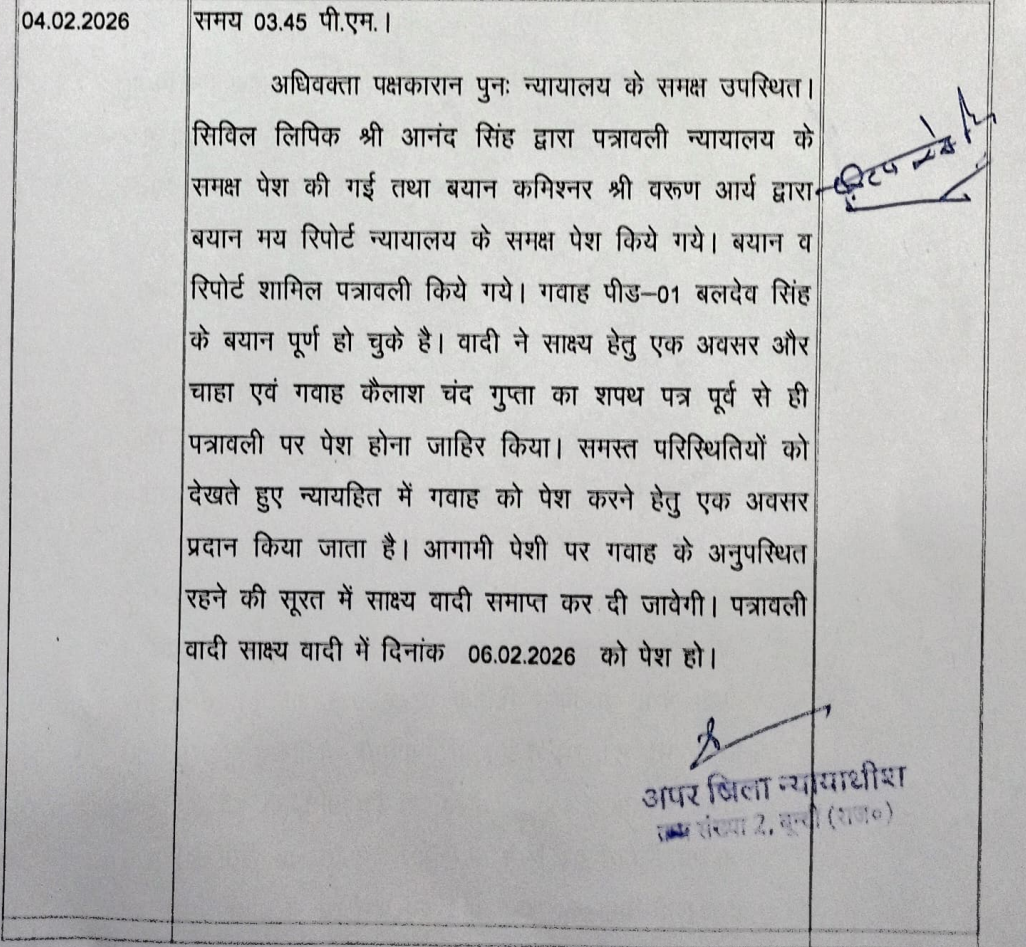 04.02.2026 समय 03.45 पी.एम.।
अधिवक्ता पक्षकारान पुनः न्यायालय के समक्ष उपस्थित।
सिविल लिपिक श्री आनंद सिंह द्वारा पत्रावली न्यायालय के
समक्ष पेश की गई तथा बयान कमिश्नर श्री वरूण आर्य द्वारा
बयान मय रिपोर्ट न्यायालय के समक्ष पेश किये गये। बयान व
रिपोर्ट शामिल पत्रावली किये गये। गवाह पीड–01 बलदेव सिंह
के बयान पूर्ण हो चुके है। वादी ने साक्ष्य हेतु एक अवसर और
चाहा एवं गवाह कैलाश चंद गुप्ता का शपथ पत्र पूर्व से ही
पत्रावली पर पेश होना जाहिर किया। समस्त परिस्थितियों को
देखते हुए न्यायहित में गवाह को पेश करने हेतु एक अवसर
प्रदान किया जाता है। आगामी पेशी पर गवाह के अनुपस्थित
रहने की सूरत में साक्ष्य वादी समाप्त कर दी जावेगी। पत्रावली
वादी साक्ष्य वादी में दिनांक 06.02.2026 को पेश हो।
अपर जिला न्यायाधीश
संख्या 2, बून्दी (राज०)